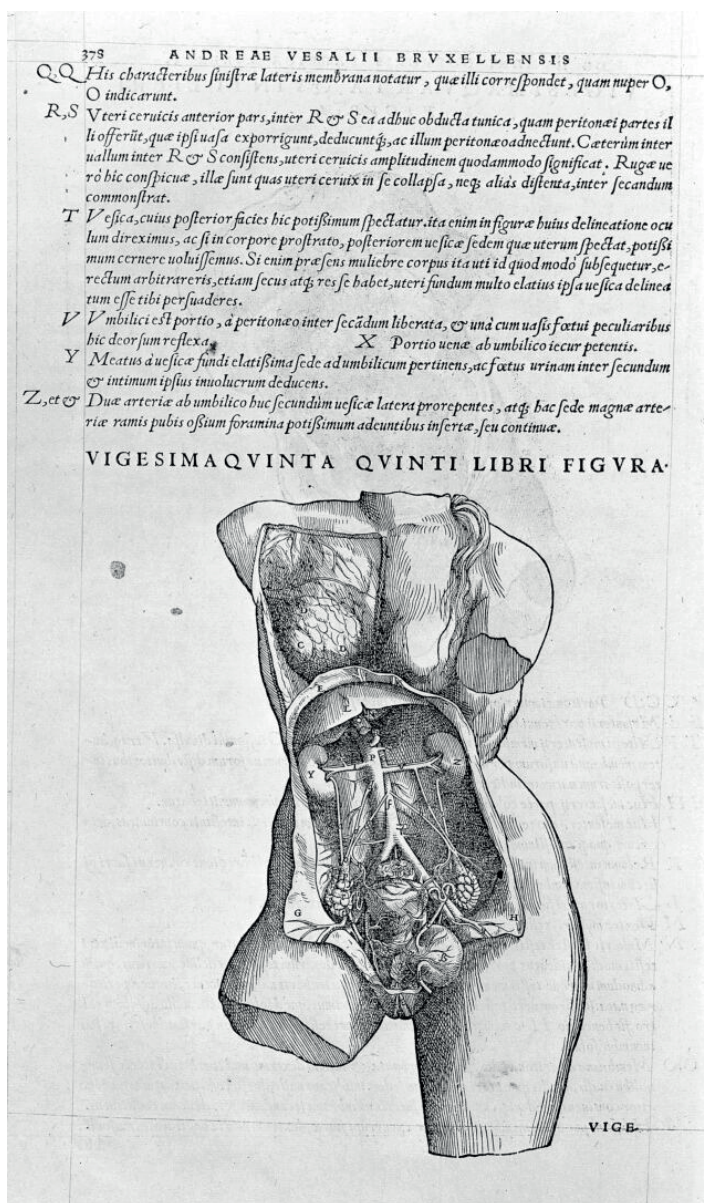 378 ANDREAE VESALII BRVXELLENSIS
Q.Q His characteribus sinistræ lateris membrana notatur, quæ illi correspondet, quam nuper O,
O indicarunt.
R,S Vteri ceruicis anterior pars, inter R & S ea adhuc obducta tunica, quam peritonæi partes il
li offerūt, quæ ipsi uasa exporrigunt, deducuntq́;, ac illum peritonæo adnectunt. Cæterùm inter
uallum inter R & S consistens, uteri ceruicis amplitudinem quodammodo significat. Rugæ ue
rò hic conspicuæ, illæ sunt quas uteri ceruix in se collapsa, neq; aliàs distenta, inter secandum
commonstrat.
T Vesica, cuius posterior facies hic potißimum spectatur. ita enim in figuræ huius delineatione ocu
lum direximus, ac si in corpore prostrato, posteriorem uesicæ sedem quæ uterum spectat, potißi
mum cernere uoluissemus. Si enim præsens muliebre corpus ita uti id quod modò subsequetur, e-
rectum arbitrareris, etiam secus atq; res se habet, uteri fundum multo elatius ipsa uesica delinea
tum esse tibi persuaderes.
V Vmbilici est portio, à peritonæo inter secādum liberata, & unà cum uasis fœtui peculiaribus
hic deorsum reflexa. X Portio uenæ ab umbilico iecur petentis.
Y Meatus à uesicæ fundi elatißima sede ad umbilicum pertinens, ac fœtus urinam inter secundum
& intimum ipsius inuolucrum deducens.
Z, et & Duæ arteriæ ab umbilico huc secundùm uesicæ latera prorepentes, atq; hac sede magnæ arte-
riæ ramis pubis oßium foramina potißimum adeuntibus insertæ, seu continuæ.
VIGESIMAQVINTA QVINTI LIBRI FIGVRA.
C D
F
L
P
Y Z
G H
B
VIGE-